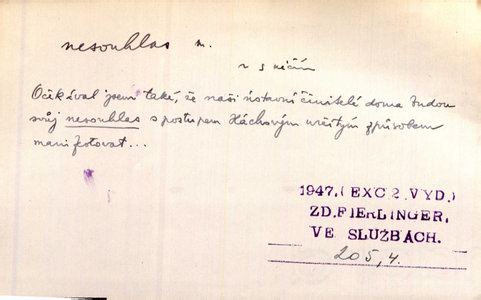 nesouhlas m.
n s něčím
Očekával jsem také, že naši ústavní činitelé doma budou
svůj nesouhlas s postupem Háchovým určitým způsobem
manifestovat...
1947. (EXC 2. VYD.)
ZD. FIERLINGER,
VE SLUŽBÁCH.
205, 4.